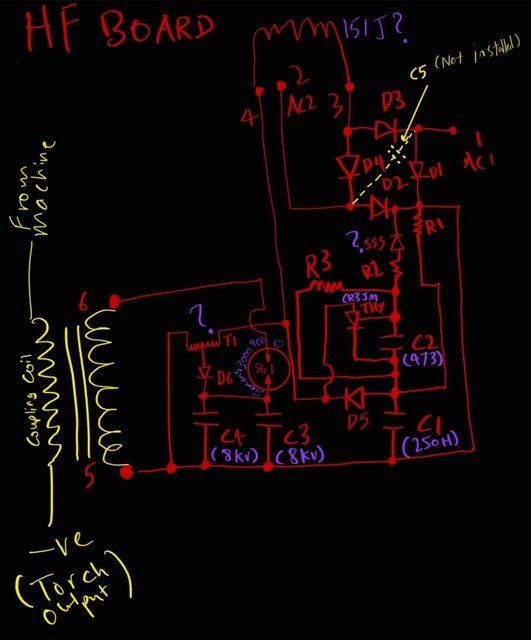 HF BOARD
151J?
C5 (Not installed)
2
AC2
4
3
D3
1
AC1
D4
D1
D2
R1
?
SSS
R2
R3
CR3JM
THY
From machine
6
?
T1
SG1
D6
C2
(473)
D5
Coupling Coil
C4
(8KV)
C3
(8KV)
C1
(250H)
5
-ve
(Torch
output)